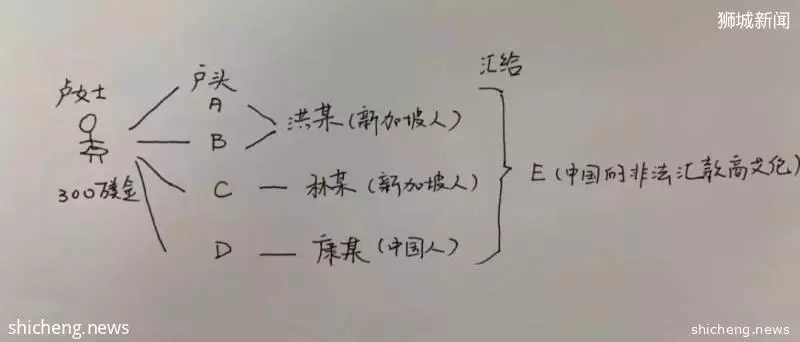 狮城新闻
汇给
户头
卢女士
A
洪某(新加坡人)
B
E(中国的非法汇款高艾伦)
300万美金
C
林某(新加坡人)
D
康某(中国人)
shicheng.news
shicheng.news